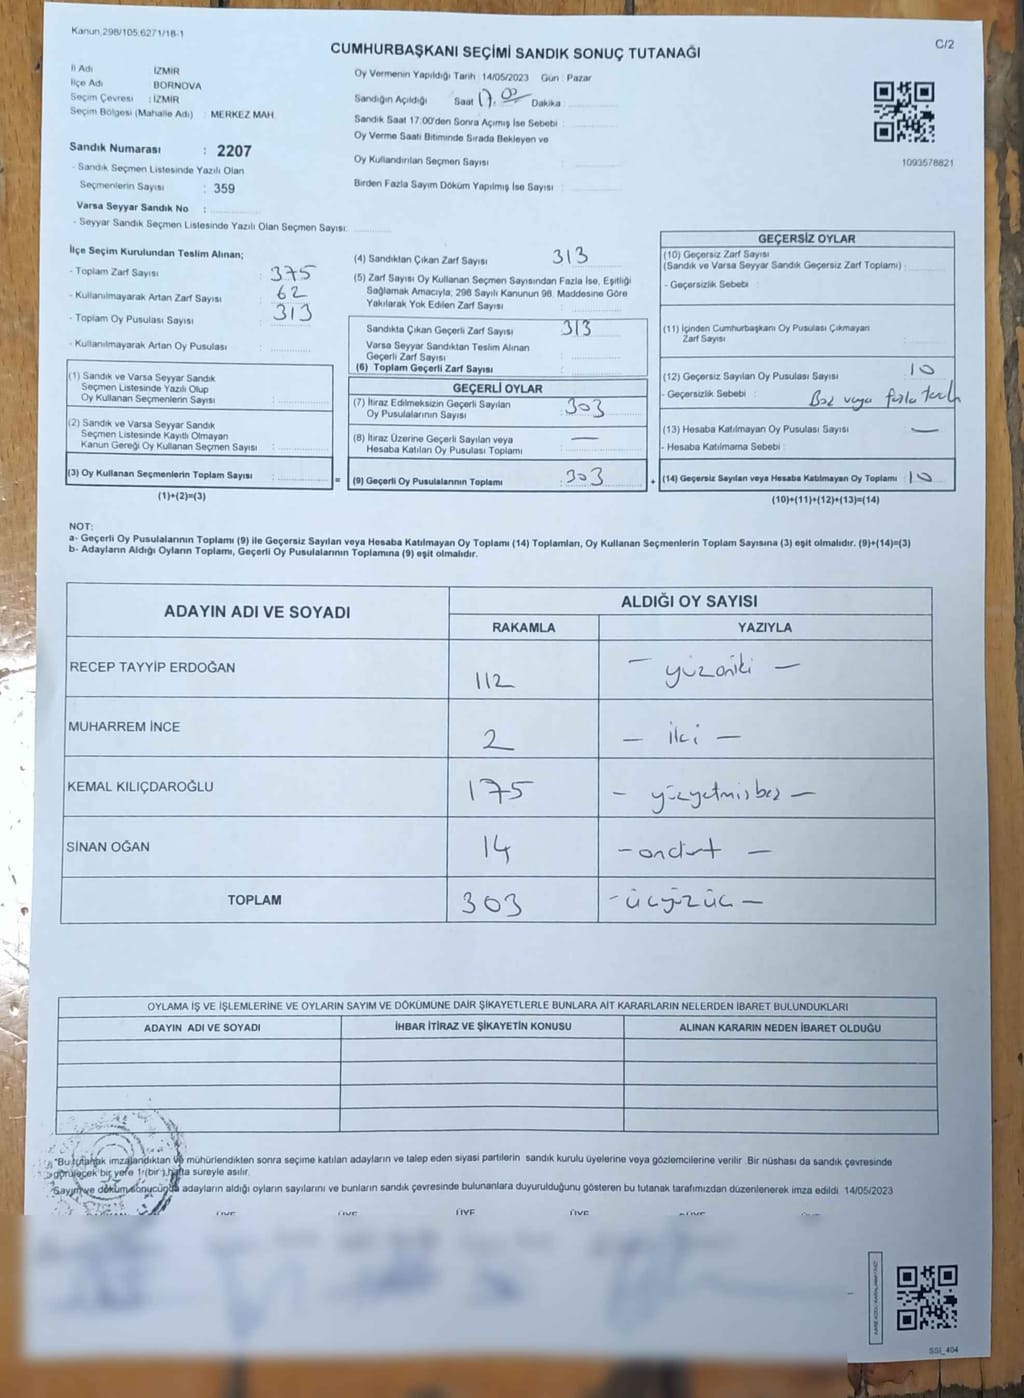 Kanun,298/105,6271/18-1
C/2
CUMHURBAŞKANI SEÇİMİ SANDIK SONUÇ TUTANAĞI
İl Adı İZMİR
İlçe Adı BORNOVA
Seçim Çevresi : İZMİR
Seçim Bölgesi (Mahalle Adı) : MERKEZ MAH.
Sandık Numarası : 2207
- Sandık Seçmen Listesinde Yazılı Olan
Seçmenlerin Sayısı : 359
Varsa Seyyar Sandık No :
- Seyyar Sandık Seçmen Listesinde Yazılı Olan Seçmen Sayısı:
Oy Vermenin Yapıldığı Tarih : 14/05/2023 Gün : Pazar
Sandığın Açıldığı Saat 17.00 Dakika :
Sandık Saat 17:00'den Sonra Açımış İse Sebebi :
Oy Verme Saati Bitiminde Sırada Bekleyen ve
Oy Kullandırılan Seçmen Sayısı :
Birden Fazla Sayım Döküm Yapılmış İse Sayısı :
1093578821
İlçe Seçim Kurulundan Teslim Alınan;
- Toplam Zarf Sayısı : 375
- Kullanılmayarak Artan Zarf Sayısı : 62
- Toplam Oy Pusulası Sayısı : 313
- Kullanılmayarak Artan Oy Pusulası :
(1) Sandık ve Varsa Seyyar Sandık
Seçmen Listesinde Yazılı Olup
Oy Kullanan Seçmenlerin Sayısı :
(2) Sandık ve Varsa Seyyar Sandık
Seçmen Listesinde Kayıtlı Olmayan
Kanun Gereği Oy Kullanan Seçmen Sayısı :
(3) Oy Kullanan Seçmenlerin Toplam Sayısı :
(1)+(2)=(3)
(4) Sandıktan Çıkan Zarf Sayısı : 313
(5) Zarf Sayısı Oy Kullanan Seçmen Sayısından Fazla İse, Eşitliği
Sağlamak Amacıyla, 298 Sayılı Kanunun 98. Maddesine Göre
Yakılarak Yok Edilen Zarf Sayısı :
Sandıkta Çıkan Geçerli Zarf Sayısı : 313
Varsa Seyyar Sandıktan Teslim Alınan
Geçerli Zarf Sayısı :
(6) Toplam Geçerli Zarf Sayısı :
GEÇERLİ OYLAR
(7) İtiraz Edilmeksizin Geçerli Sayılan
Oy Pusulalarının Sayısı : 303
(8) İtiraz Üzerine Geçerli Sayılan veya
Hesaba Katılan Oy Pusulası Toplamı : —
= (9) Geçerli Oy Pusulalarının Toplamı : 303
GEÇERSİZ OYLAR
(10) Geçersiz Zarf Sayısı
(Sandık ve Varsa Seyyar Sandık Geçersiz Zarf Toplamı) :
- Geçersizlik Sebebi :
(11) İçinden Cumhurbaşkanı Oy Pusulası Çıkmayan
Zarf Sayısı :
(12) Geçersiz Sayılan Oy Pusulası Sayısı : 10
- Geçersizlik Sebebi : Boş veya fazla tercih
(13) Hesaba Katılmayan Oy Pusulası Sayısı : —
- Hesaba Katılmama Sebebi :
+ (14) Geçersiz Sayılan veya Hesaba Katılmayan Oy Toplamı : 10
(10)+(11)+(12)+(13)=(14)
NOT:
a- Geçerli Oy Pusulalarının Toplamı (9) ile Geçersiz Sayılan veya Hesaba Katılmayan Oy Toplamı (14) Toplamları, Oy Kullanan Seçmenlerin Toplam Sayısına (3) eşit olmalıdır. (9)+(14)=(3)
b- Adayların Aldığı Oyların Toplamı, Geçerli Oy Pusulalarının Toplamına (9) eşit olmalıdır.
ADAYIN ADI VE SOYADI ALDIĞI OY SAYISI
RAKAMLA YAZIYLA
RECEP TAYYİP ERDOĞAN 112 — yüzoniki —
MUHARREM İNCE 2 — iki —
KEMAL KILIÇDAROĞLU 175 — yüzyetmişbeş —
SİNAN OĞAN 14 — ondört —
TOPLAM 303 — üçyüzüç —
OYLAMA İŞ VE İŞLEMLERİNE VE OYLARIN SAYIM VE DÖKÜMÜNE DAİR ŞİKAYETLERLE BUNLARA AİT KARARLARIN NELERDEN İBARET BULUNDUKLARI
ADAYIN ADI VE SOYADI İHBAR İTİRAZ VE ŞİKAYETİN KONUSU ALINAN KARARIN NEDEN İBARET OLDUĞU
"Bu tutanak imzalandıktan ve mühürlendikten sonra seçime katılan adayların ve talep eden siyasi partilerin sandık kurulu üyelerine veya gözlemcilerine verilir. Bir nüshası da sandık çevresinde
görülecek bir yere 1 (bir) hafta süreyle asılır.
Sayım ve döküm sonucunda adayların aldığı oyların sayılarını ve bunların sandık çevresinde bulunanlara duyurulduğunu gösteren bu tutanak tarafımızdan düzenlenerek imza edildi. 14/05/2023
ÜYE ÜYE ÜYE ÜYE ÜYE
SSI_404